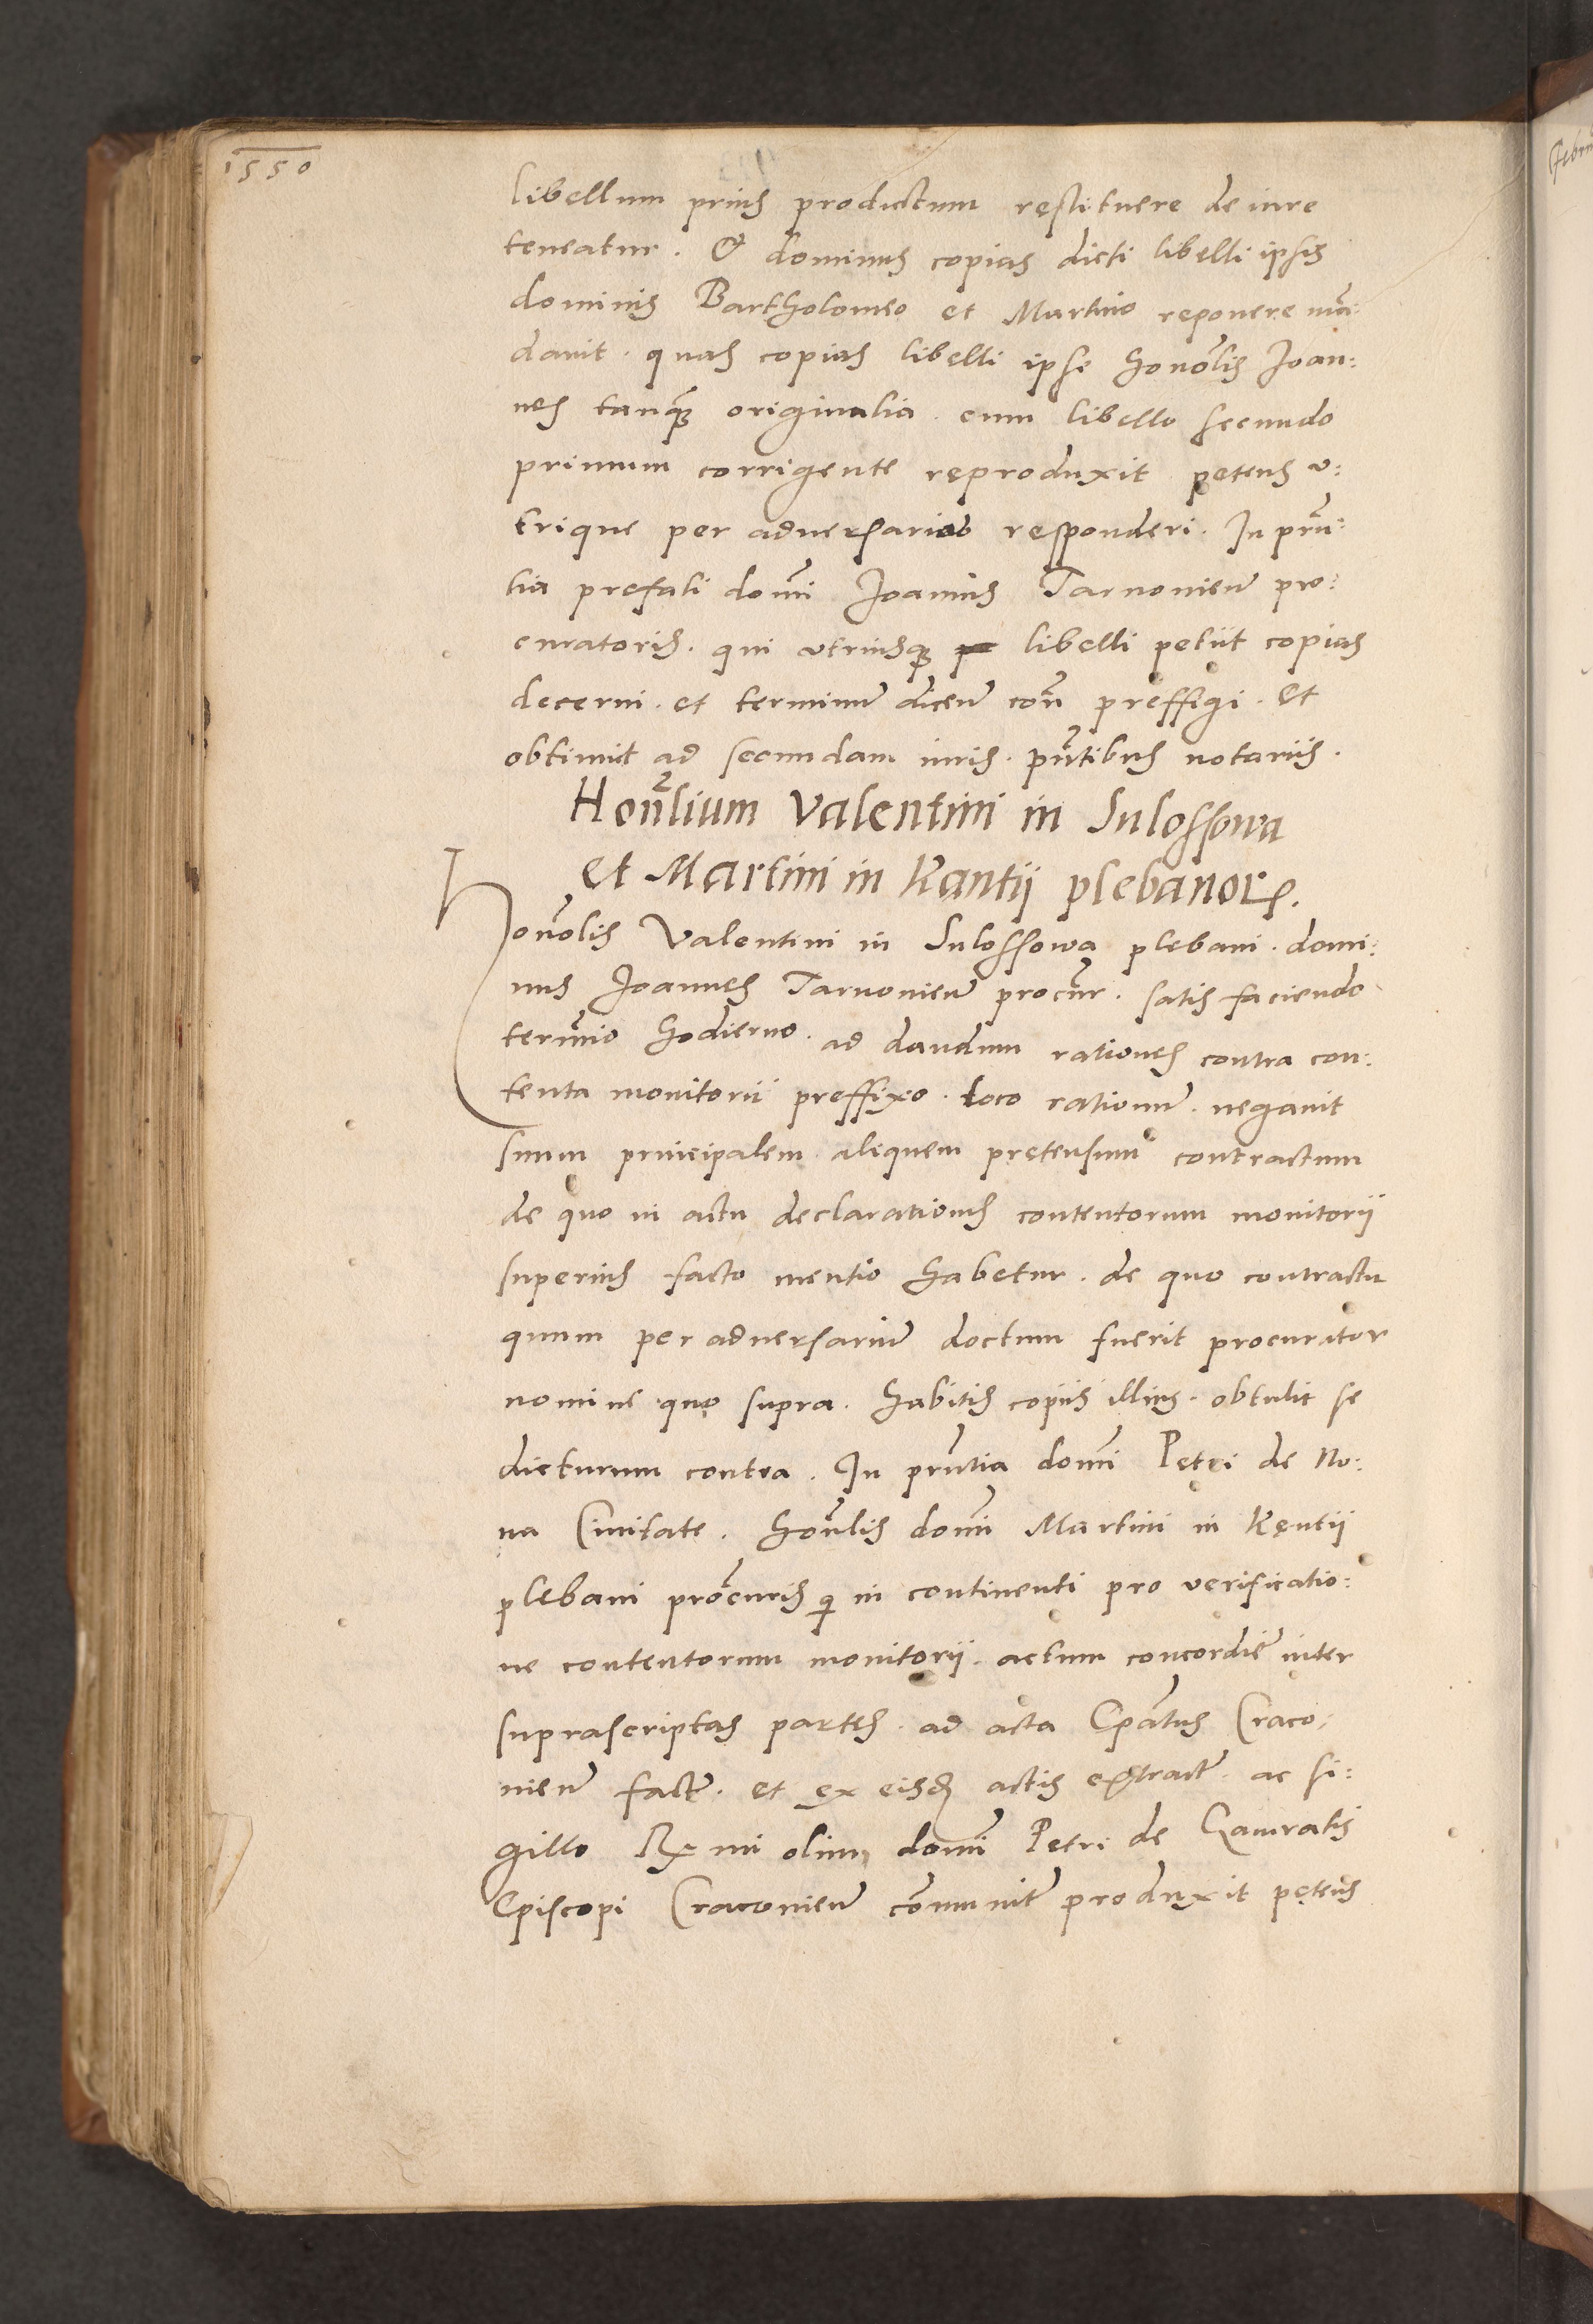 1550
libellum prius productum restituere de iure
teneatur. Et dominus copias dicti libelli ipsis
dominis Bartholomeo et Martino reponere mā:
davit. quas copias libelli ipse honōlis Joan:
nes tanq̃ originalia. cum libello secundo
primum corrigente reproduxit petens v:
trique per adversarios responderi. In prñ:
tia prefati domī Joannis Tarnovieñ pro:
curatoris. qui utriusq; libelli petiit copias
decerni. et terminū diceñ coñ preffigi. Et
obtinuit ad secundam iuris. pñtibus notariis.
Honãlium Valentini in Sulossowa
et Martini in Kantii plebanoꝝ.
Honōlis Valentini in Sulossowa plebani. domi:
nus Joannes Tarnovieñ procūr. satis faciendo
termīo hodierno. ad dandum rationes contra con:
tenta monitorii preffixo. loco rationū. negavit
suum principalem aliquem pretensum contractum
de quo in actu declarationis contentorum monitorii
superius facto mentio habetur. de quo contractu
quum per adversariū doctum fuerit procurator
nomine quo supra. habitis copiis illius. obtulit se
dicturum contra. In prñtia domī Petri de No:
va Civitate. honñlis domī Martini in Kentii
plebani procūris q in continenti pro verificatio:
ne contentorum monitorii. actum concordie inter
suprascriptas partes. ad acta Epātus Craco:
vieñ factū. et ex eisdē actis extractū. ac si:
gillo Rx mi olim domī Petri de Gamratis
Episcopi Cracovieñ cōmunitū produxit petens
Febru